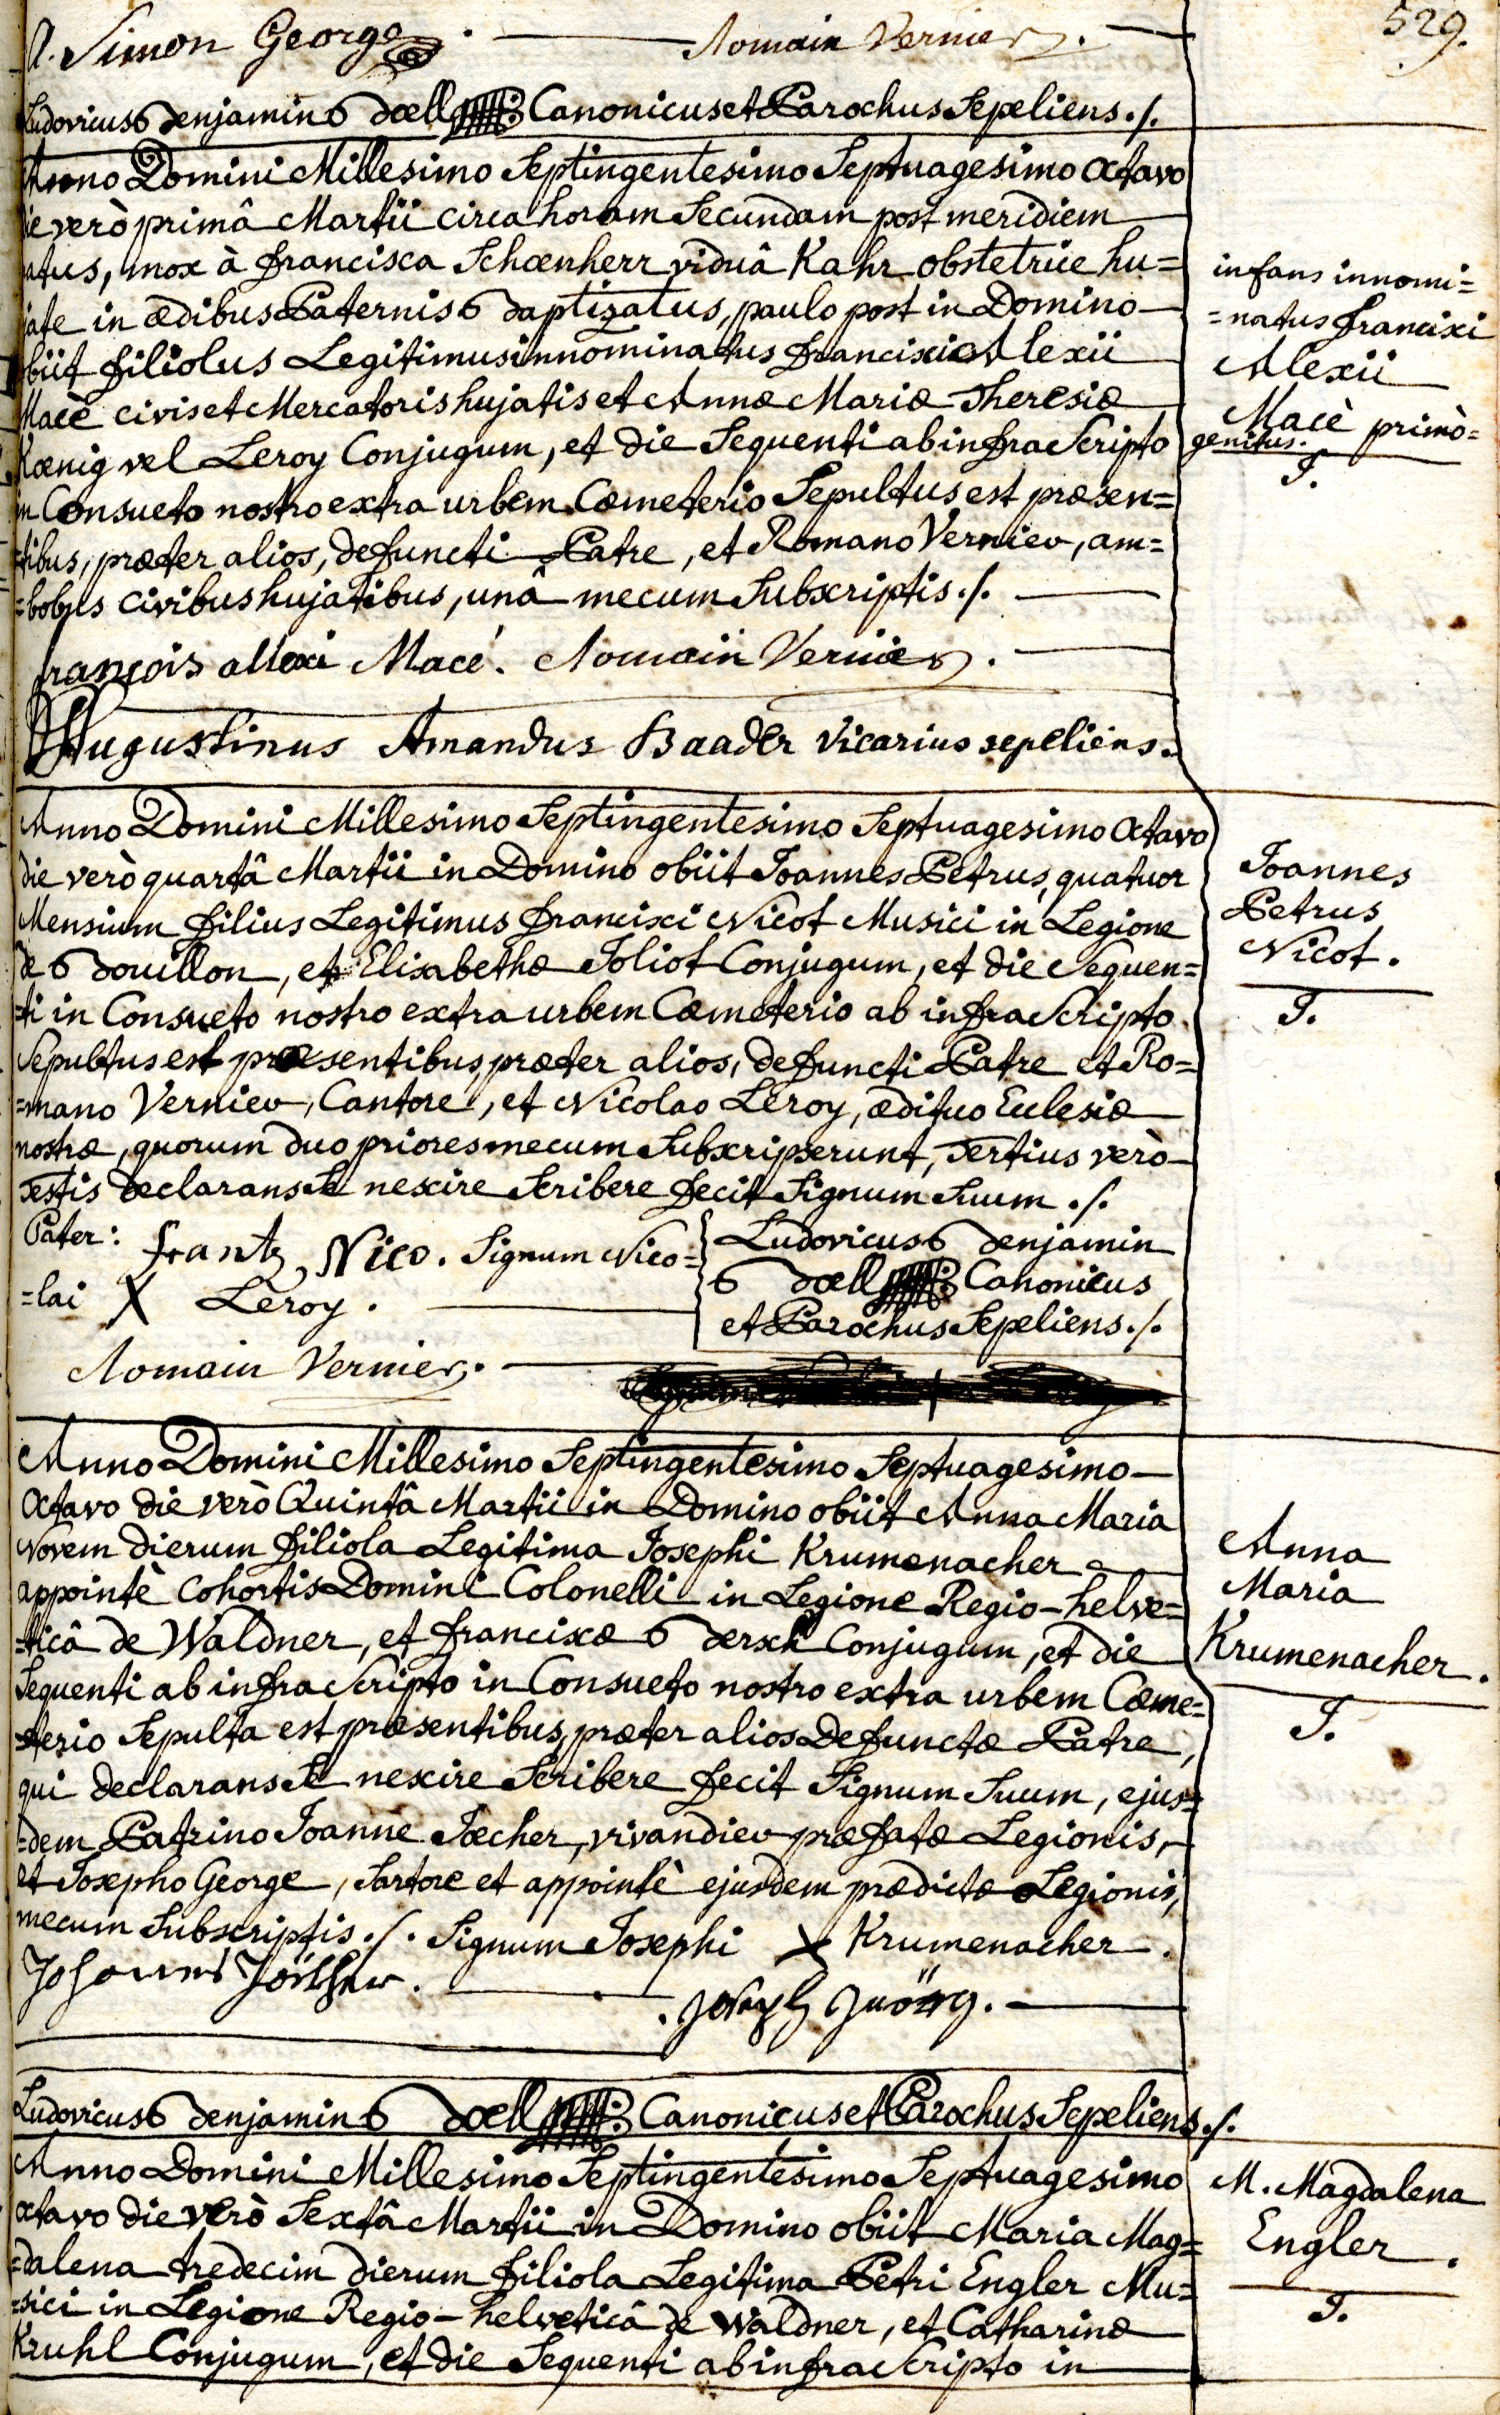 529.
A. Simon George. Romain Vernier.
Ludovicus Benjamin Boell Canonicus et Parochus Sepeliens ./.
Anno Domini Millesimo Septingentesimo Septuagesimo Octavo
die verò primâ Martii circa horam Secundam post meridiem
natus, mox à Francisca Schœnherr viduâ Kahr obstetrice hu=
jate in ædibus Paternis Baptizatus, paulo post in Domino
obiit filiolus Legitimus innominatus Francisci Alexii
Macè civis et Mercatoris hujatis et Annæ Mariæ Theresiæ
Kœnig vel Leroy Conjugum, et die Sequenti ab infra Scripto
in Consueto nostro extra urbem Cœmeterio Sepultus est præsen=
=tibus, præter alios, defuncti Patre, et Romano Vernier, am=
=bobus civibus hujatibus, unâ mecum Subscriptis ./.
françois allexi Macé. Romain Vernier.
Augustinus Amandus Baader vicarius sepeliens.
infans innomi=
=natus Francisci
Alexii
Macè primò=
genitus.
J.
Anno Domini Millesimo Septingentesimo Septuagesimo Octavo
die verò quartâ Martii in Domino obiit Joannes Petrus, quatuor
Mensium filius Legitimus Francisci Nicot Musici in Legione
de Bouillon, et Elisabethæ Joliot Conjugum, et die Sequen=
=ti in Consueto nostro extra urbem Cœmeterio ab infra Scripto
Sepultus est præsentibus, præter alios, defuncti Patre et Ro=
=mano Vernier, Cantore, et Nicolao Leroy, ædituo Ecclesiæ
nostræ, quorum duo priores mecum Subscripserunt, Tertius verò
Testis declarans Se nescire Scribere fecit Signum Suum ./.
Pater: frantz Nico. Signum Nico=
=lai X Leroy.
Romain Vernier.
Ludovicus Benjamin
Boell Canonicus
et Parochus Sepeliens ./.
Joannes
Petrus
Nicot.
J.
Anno Domini Millesimo Septingentesimo Septuagesimo
Octavo die verò Quintâ Martii in Domino obiit Anna Maria
Novem dierum filiola Legitima Josephi Krumenacher
appointè Cohortis Domini Colonelli in Legione Regio-helve=
=ticâ de Waldner, et Franciscæ Bersch Conjugum, et die
Sequenti ab infra Scripto in Consueto nostro extra urbem Cœme=
=terio Sepulta est præsentibus, præter alios Defunctæ Patre,
qui declarans Se nescire Scribere fecit Signum Suum, ejus=
=dem Patrino Joanne Jœcher, vivandier præfatæ Legionis,
et Josepho George, Sartore et appointè ejusdem prædictæ Legionis,
mecum Subscriptis ./. Signum Josephi X Krumenacher.
Johannes Jöcher.
Joseph Juörg.
Ludovicus Benjamin Boell Canonicus et Parochus Sepeliens ./.
Anna
Maria
Krumenacher.
J.
Anno Domini Millesimo Septingentesimo Septuagesimo
octavo die verò Sextâ Martii in Domino obiit Maria Mag=
=dalena tredecim dierum filiola Legitima Petri Engler Mu=
=sici in Legione Regio-helveticâ de Waldner, et Catharinæ
Kruhl Conjugum, et die Sequenti ab infra Scripto in
M. Magdalena
Engler.
J.